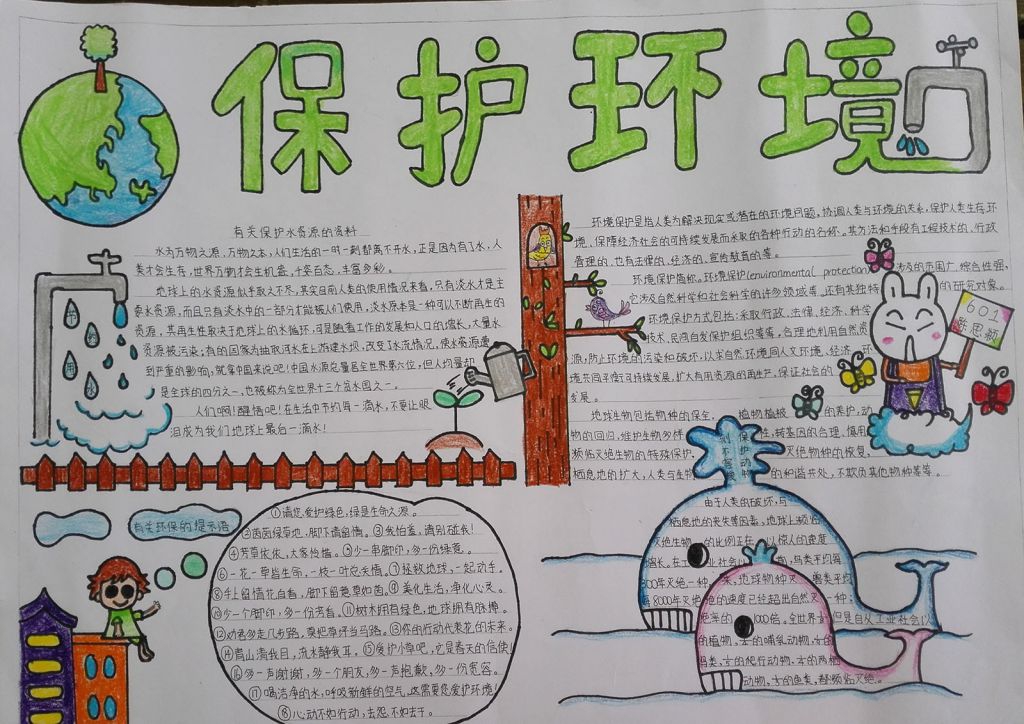 保护环境
有关保护水资源的资料
水为万物之源,万物之本,人们生活的一时一刻都离不开水,正是因为有了水,人
类才会生存,世界万物才会生机盎,千姿百态,丰富多彩。
地球上的水资源似乎取之不尽,其实目前人类的使用情况来看,只有淡水才是主
要水资源,而且只有淡水中的一部分才能被人们使用,淡水原本是一种可以不断再生的
资源,其再生性取决于地球上的水循环,可是随着工作的发展和人口的增长,大量水
资源被污染;有的国家为抽取河水在上游建水坝,改变了水流情况,使水资源遭
到严重的影响,就拿中国来说吧!中国水源总量居全世界第六位,但人均量却
是全球的四分之一,也被称为全世界十三个贫水国之一。
人们啊!醒悟吧!在生活中节约每一滴水,不要让眼
泪成为我们地球上最后一滴水!
节
约
用
水
环境保护是指人类为解决现实或潜在的环境问题,协调人类与环境的关系,保护人类生存环
境、保障经济社会的可持续发展而采取的各种行动的名称。其方法和手段有工程技术的、行政
管理的,也有法律的、经济的、宣传教育的等。
环境保护简称。环境保护(environmental protection) 涉及的范围广、综合性强,
它涉及自然科学和社会科学的许多领域等,还有其独特 的研究对象。
环境保护方式包括:采取行政、法律、经济、科学
技术、民间自发保护组织等等,合理地利用自然资
源,防止环境的污染和破坏,以求自然环境同人文环境、经济环
境共同平衡可持续发展,扩大有用资源的再生产,保证社会的
发展。
地球生物包括物种的保全, 植物植被 的养护,动
物的回归,维护生物多样 性,转基因的合理、慎用
濒临灭绝生物的特殊保护, 灭绝物种的恢复,
栖息地的扩大,人类与生物 的和谐共处,不欺负其他物种等等。
601
陈思颖
保护动物
有关环保的提示语
①请您爱护绿色,绿是生命之源。
②茵茵绿草地,脚下请留情。③我怕羞,请别碰我!
④芳草依依,大家怜惜。⑤少一串脚印,多一份绿意。
⑥一花一草皆生命,一枝一叶总关情。⑦拯救地球,一起动手。
⑧手上留情花自香,脚下留意草如茵。⑨美化生活,净化心灵。
⑩少一个脚印,多一份芳香。⑪树木拥有绿色,地球拥有脉搏。
⑫劝君多走几步路,莫把草坪当马路。⑬你的行动代表花的未来。
⑭青山清我目,流水静我耳。⑮爱护小草吧,它是春天的信使!
⑯多一声谢谢,多一个朋友,多一声抱歉,多一份宽容。
⑰喝洁净的水,呼吸新鲜的空气,这需要您爱护环境!
⑱心动不如行动,去怨不如去干。
由于人类的破坏,与
栖息地的丧失等因素,地球上濒临
灭绝生物 的比例正在 以惊人的速度
增长。在工业社会以 前,鸟类平均每
300年灭绝一种,
每8000年灭绝
的速度已经超出自然灭
1000倍。全世界 但是自从工业社会以
的植物、 的哺乳动物、
鸟类、 的爬行动物、 的两栖
动物、 的鱼类,都濒临灭绝。